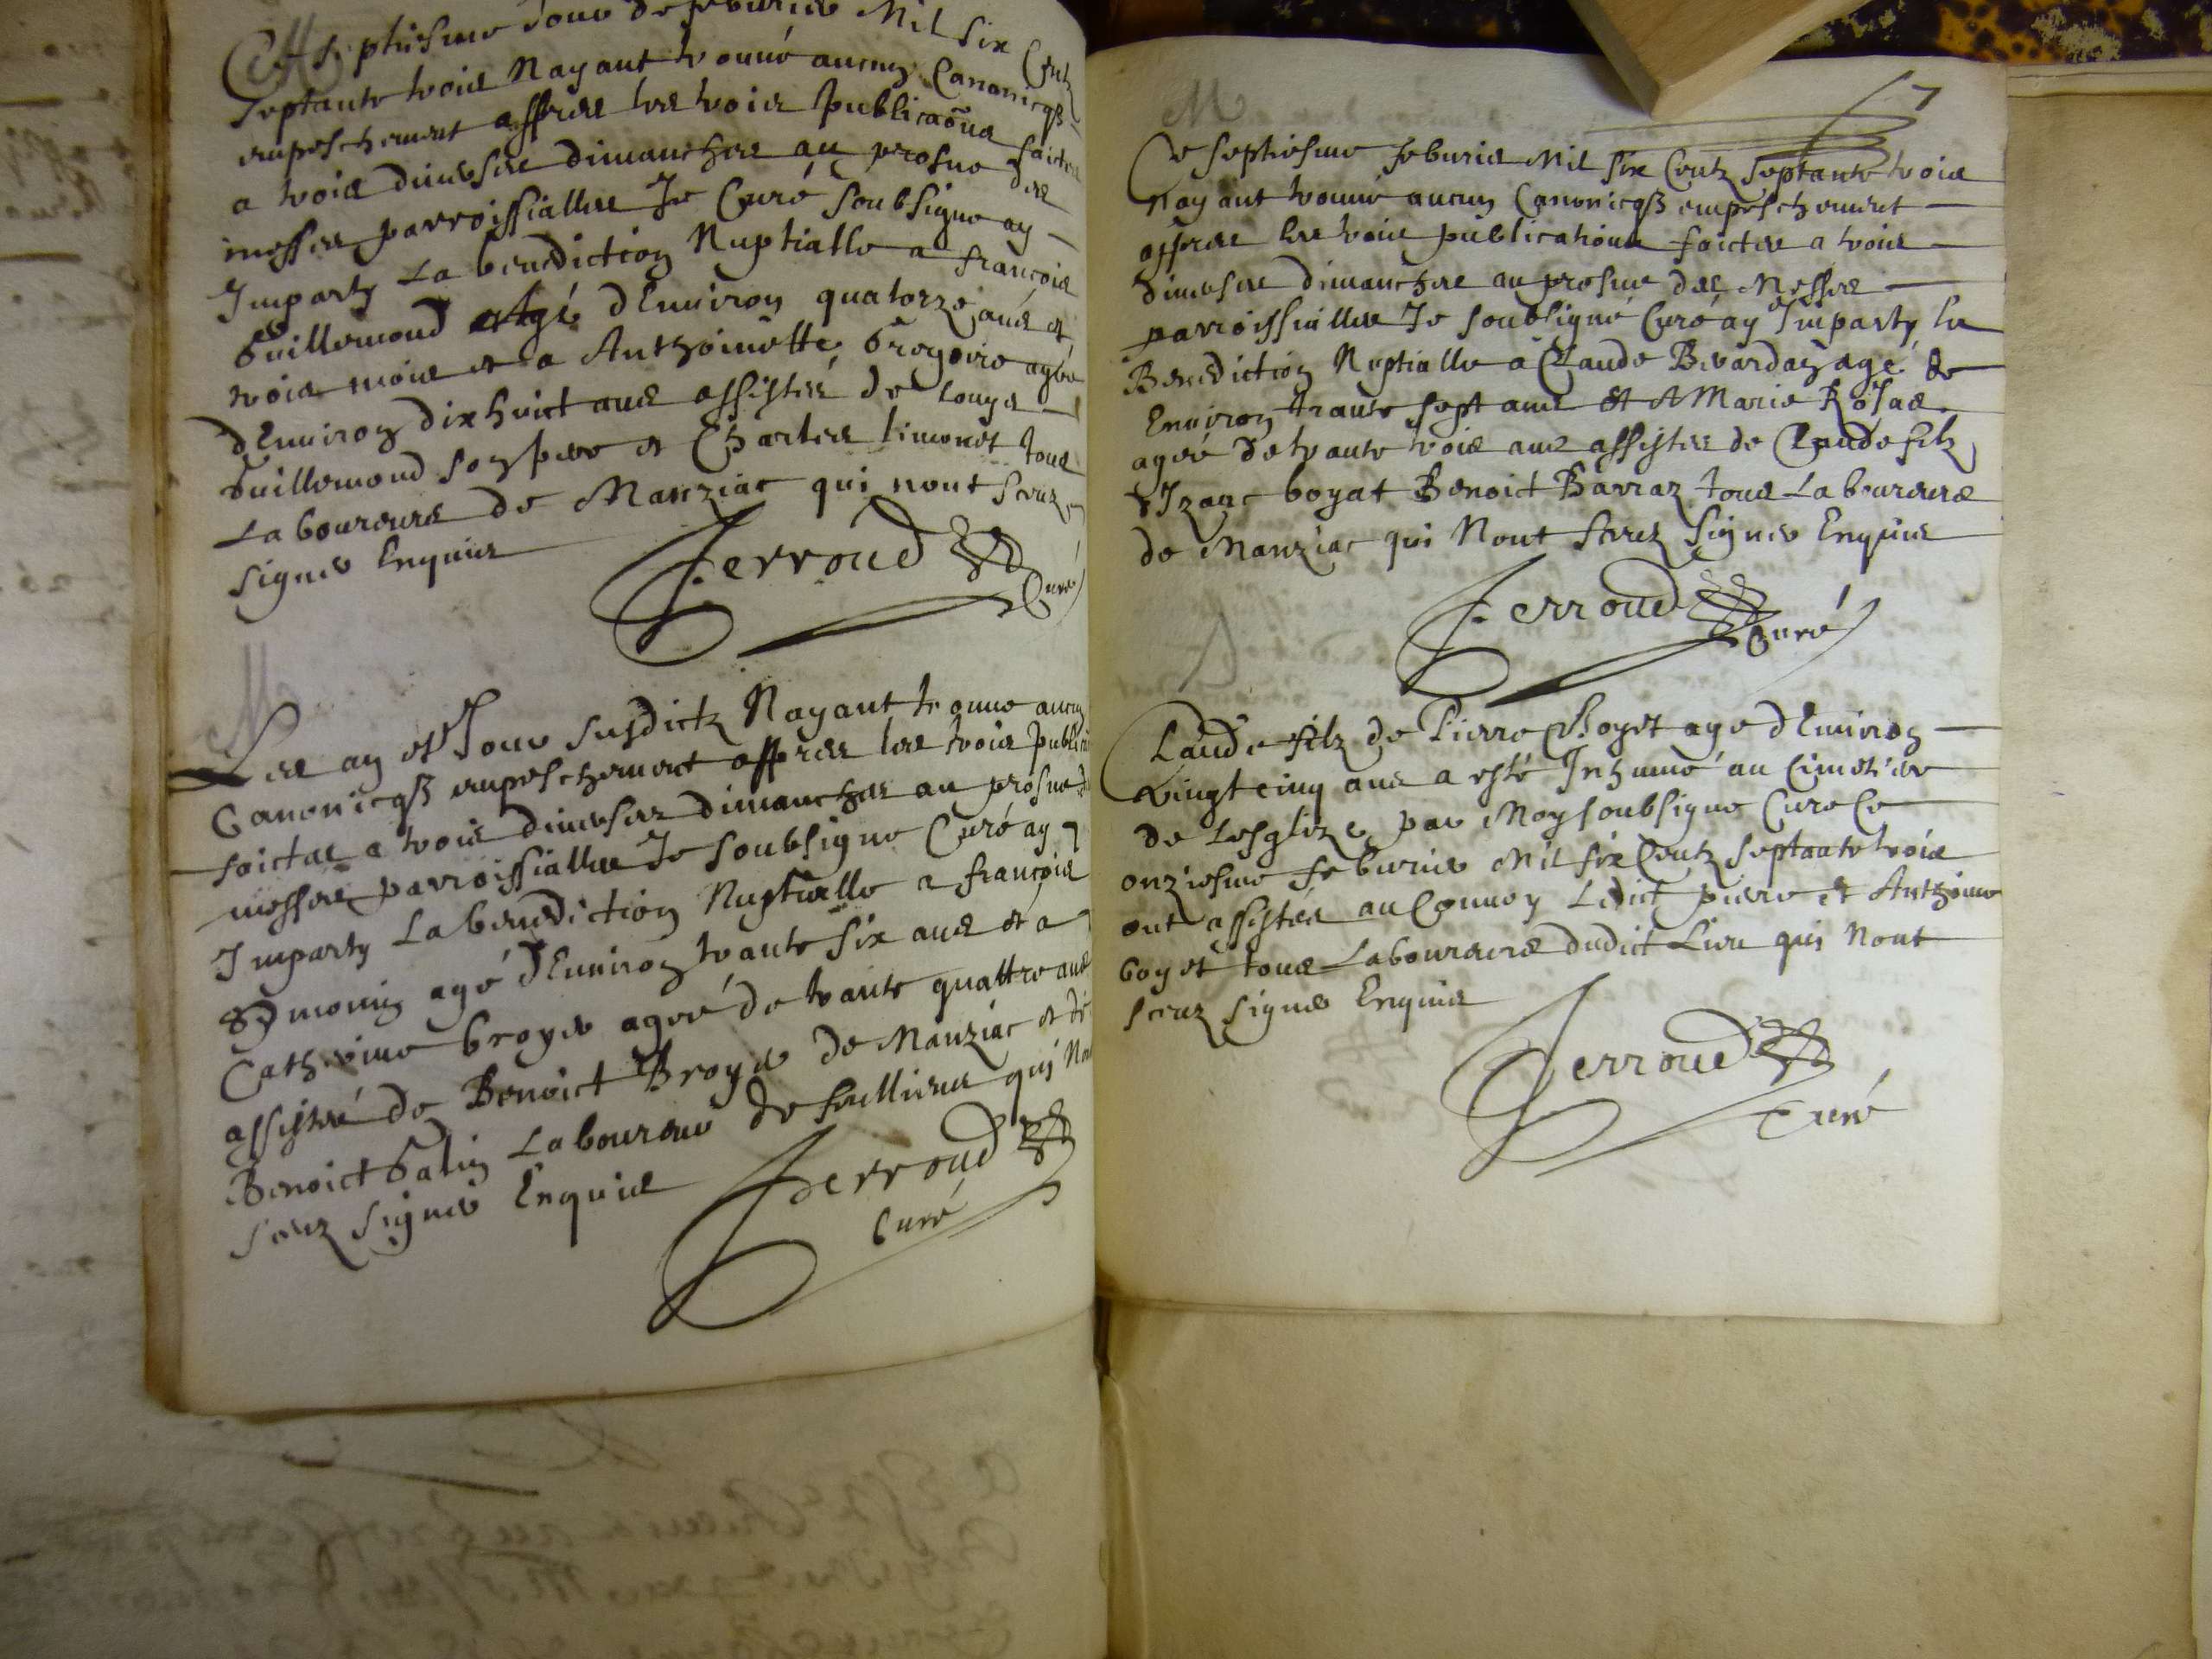 M
Ce septiesme Jour de febvrier Mil six Centz
septante trois Nayant trouvé aucung Canonicqz
empeschement appres les trois publicaõns faictes
a trois diverses dimanches au prosne des
messes parroissialles Je Curé soubsigne ay
Imparty La benediction Nuptialle a françois
Guillemoud Agé dEnviron quatorze ans et
trois mois et a Anthoinette Gregoire agée
dEnviron dixhuict ans assistés de Louys
Guillemoud son pere et Charles Limonet tous
Laboureurs de Manziac qui nont sceuz
signer Enquis
Ferroud
Curé
M
Les an et Jour susdictz Nayant trouve aucun
Canonicqz empeschement appres les trois public
faictes a trois diverses dimanches au prosne d
messes parroissialles Je soubsigne Curé ay
Imparty La benediction Nuptialle a françois
Symonin agé dEnviron trante six ans et a
Catherine broyer agée de trante quattre ans
assisté de Benoict Broyer de Manziac et de
Benoict Galin Laboureur de feullieus qui No
sceuz signer Enquis
Ferroud
Curé
7
M
Ce septiesme febvrier Mil six Centz septante trois
Nayant trouvé aucun Canonicqz empeschement
appres les trois publications faictes a trois
diverses dimanches au prosne des Messes
parroissialles Je soubsigné Curé ay Imparty la
Benediction Nuptialle a Claude Berardan agé de
Environ trante sept ans Et A Marie Rojas
agée de trante trois ans assistes de Claude filz
dIzaac boyat Benoict Barraz tous Laboureurs
de Manziac qui Nont sceuz signer Enquis
Ferroud
Curé
Claude filz de Pierre Boyet age dEnviron
vingt cinq ans a esté Inhumé au Cimetiere
de Lesglize par Moy soubsigne Cure Ce
onziesme febvrier Mil six Centz septante trois
ont assistés au Convoy Ledict pierre et Anthoine
boyet tous Laboureurs dudict Lieu qui Nont
sceuz signer Enquis
Ferroud
Curé